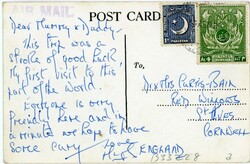 AIR MAIL
POST CARD
PAKISTAN
Dear Mummy & Daddy
This trip was a
stroke of good luck
My first visit to this
part of the world.
Everyone is very
friendly here and in
a minute we hope to have
some curry
Love
RED
ST IVES
CORNWALL
ENGLAND